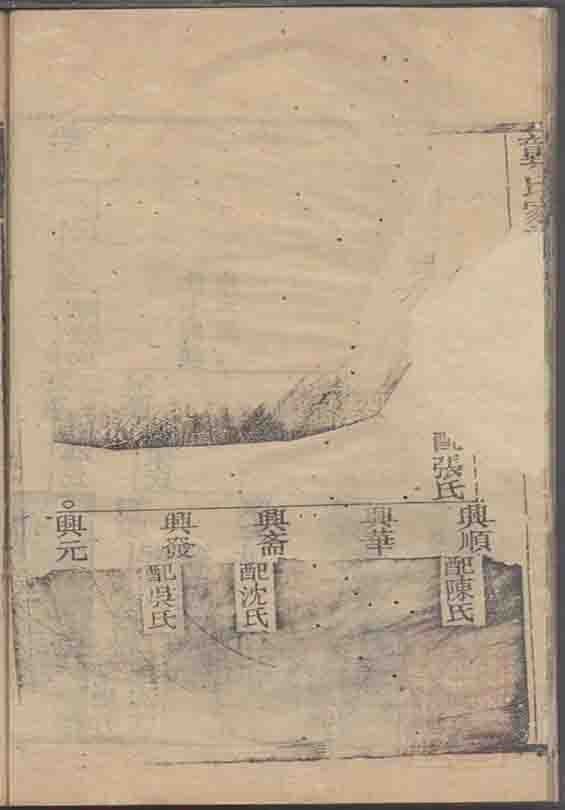 龔氏家
配張氏
興順
配陳氏
興華
興斋
配沈氏
興發
配吳氏
興元